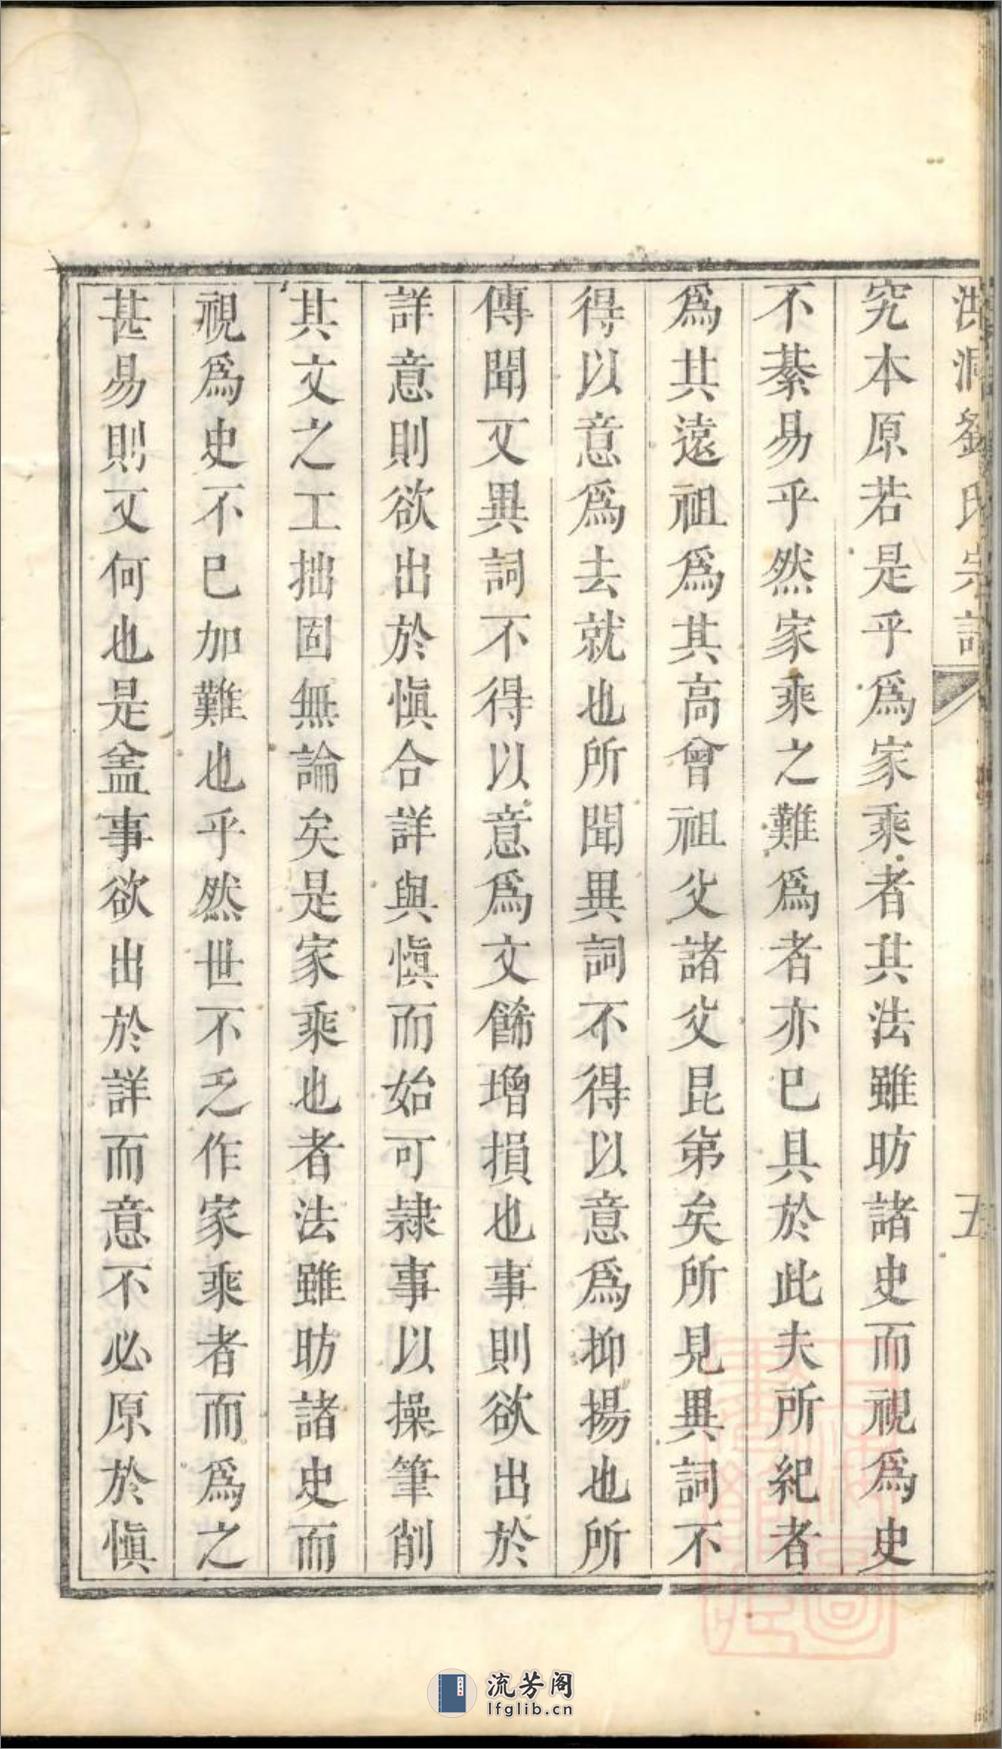 洪洞劉氏宗譜
五
究本原若是乎爲家乘者其法雖昉諸史而視爲史
不綦易乎然家乘之難爲者亦已具於此夫所紀者
爲其遠祖爲其高曾祖父諸父昆弟矣所見異詞不
得以意爲去就也所聞異詞不得以意爲抑揚也所
傳聞又異詞不得以意爲文餙增損也事則欲出於
詳意則欲出於愼合詳與愼而始可隷事以操筆削
其文之工拙固無論矣是家乘也者法雖昉諸史而
視爲史不已加難也乎然世不乏作家乘者而爲之
甚易則又何也是盖事欲出於詳而意不必原於愼
流芳阁
lfglib.cn